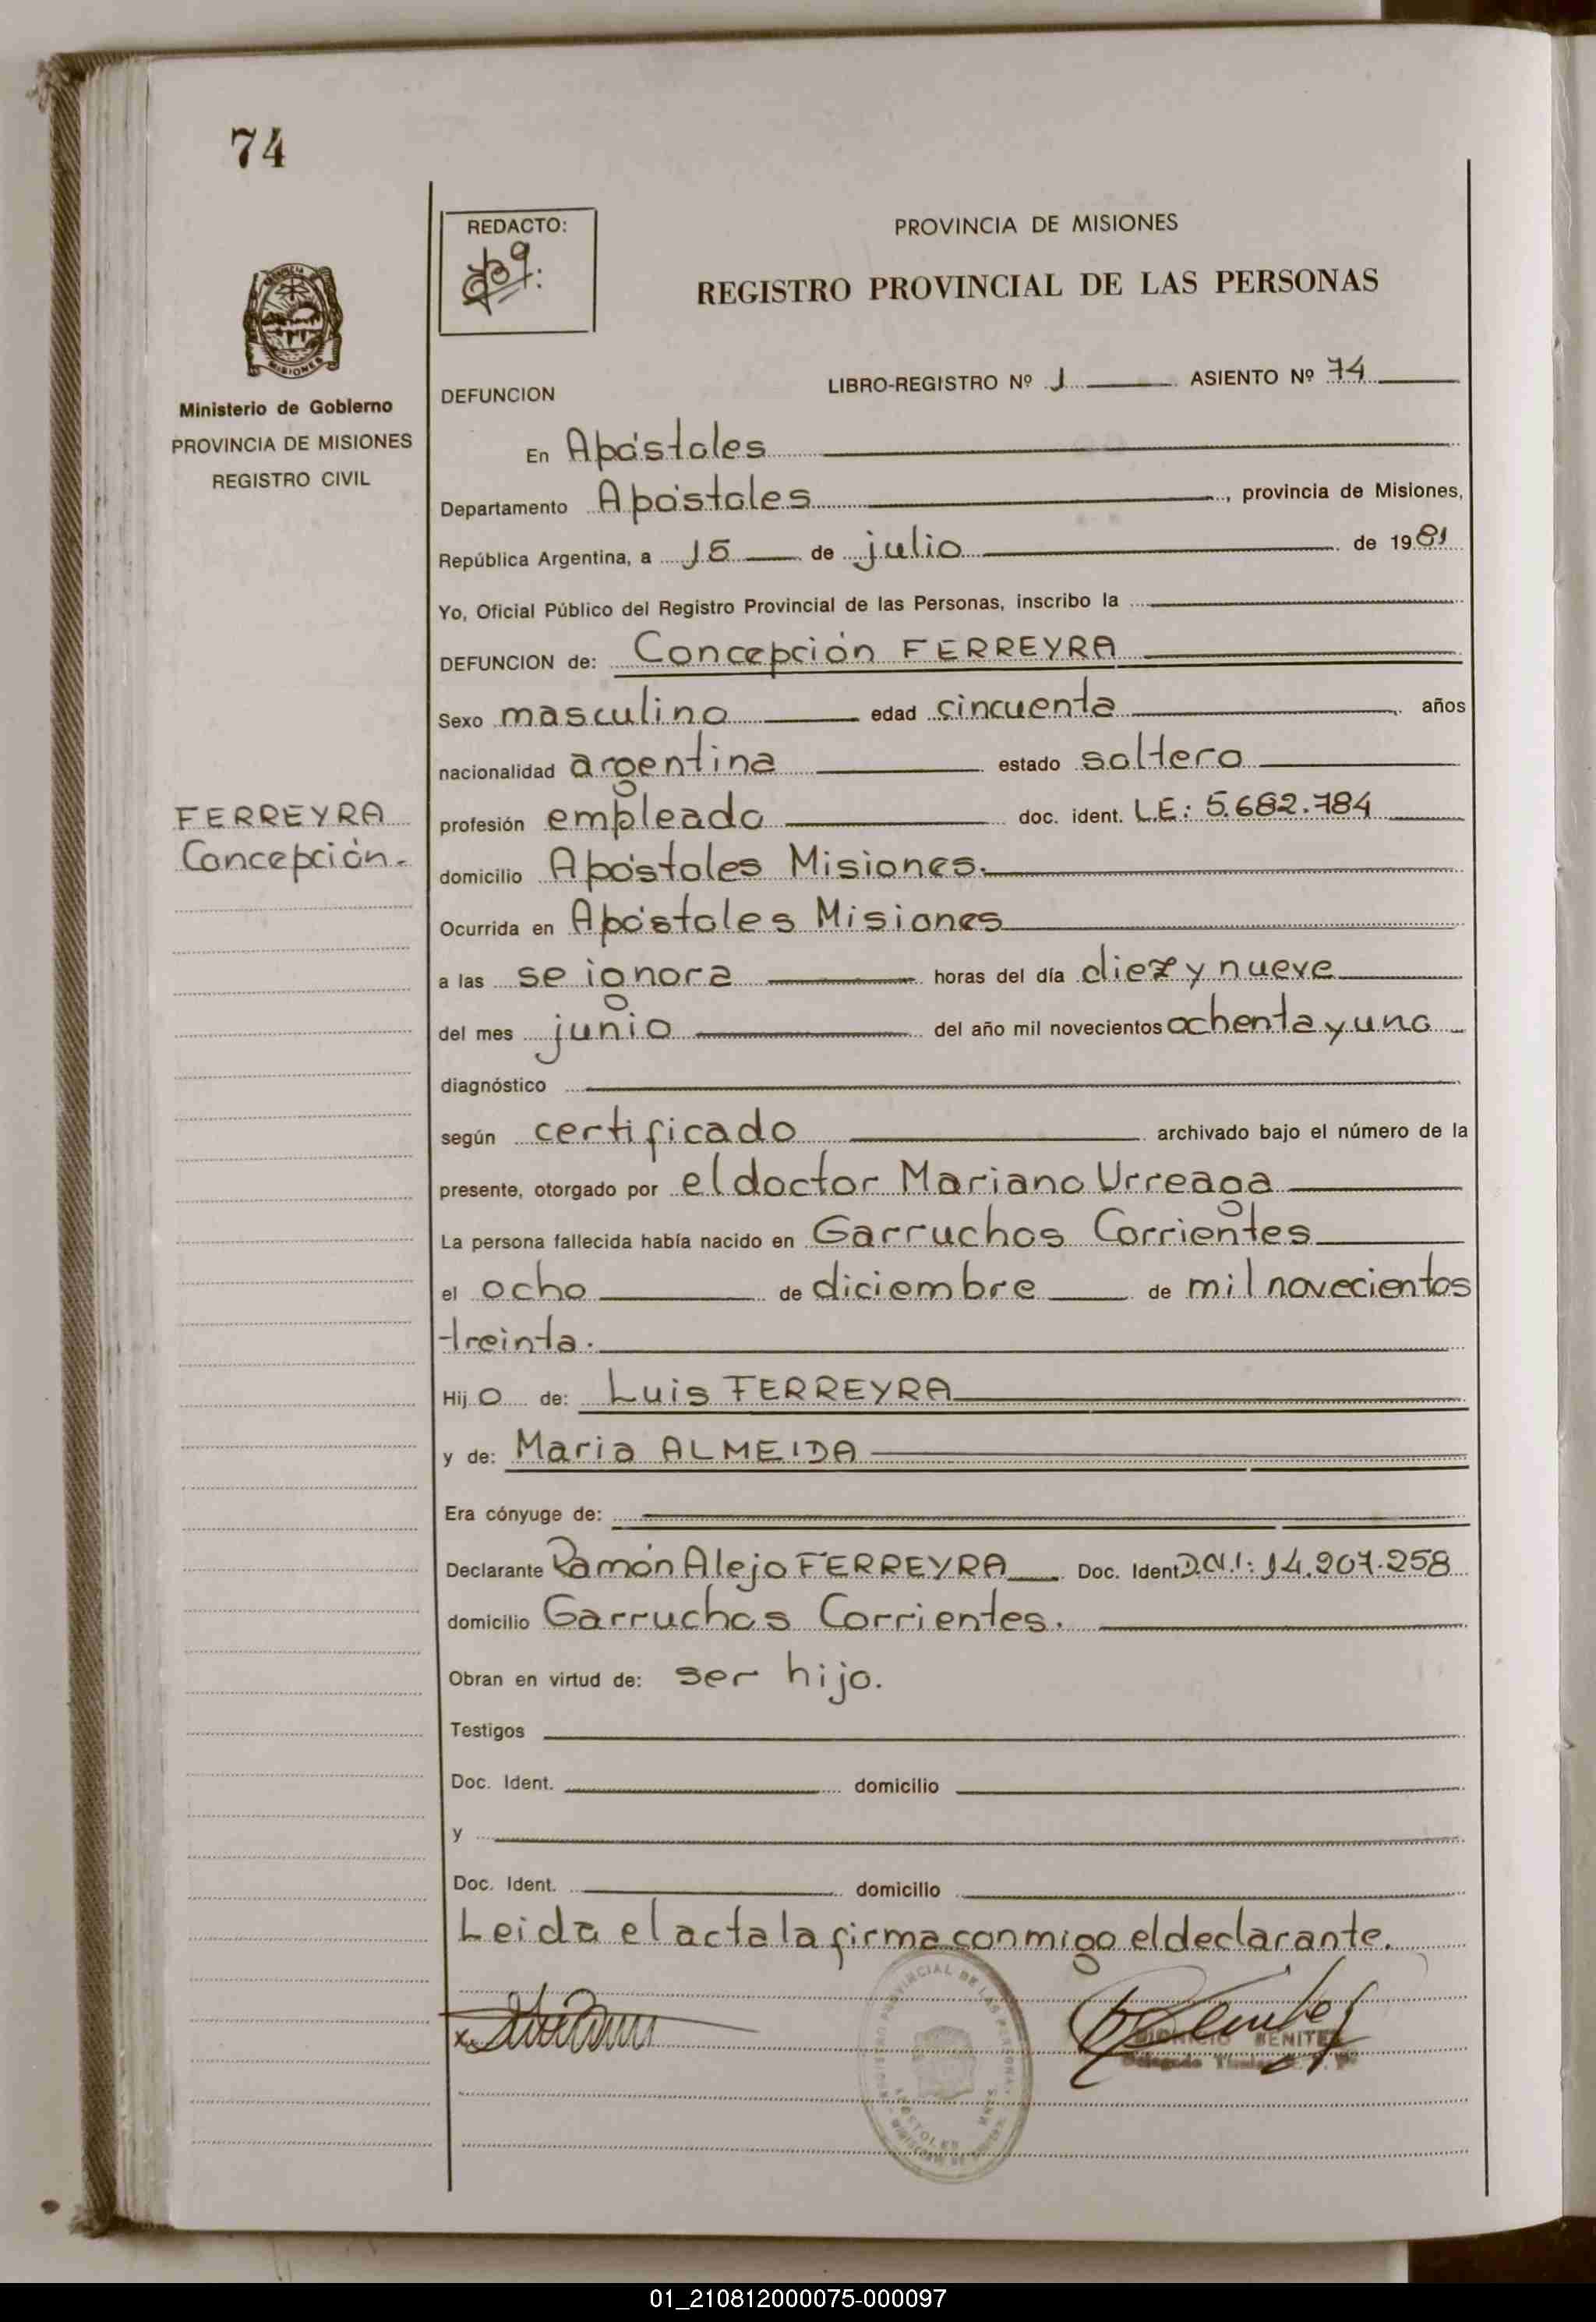 74
REDACTO:
PROVINCIA DE MISIONES
REGISTRO PROVINCIAL DE LAS PERSONAS
MISIONES
Ministerio de Gobierno
PROVINCIA DE MISIONES
REGISTRO CIVIL
DEFUNCION LIBRO-REGISTRO Nº 1 ASIENTO Nº 74
En Apóstoles
Departamento Apóstoles, provincia de Misiones,
República Argentina, a 15 de julio de 1981
Yo, Oficial Público del Registro Provincial de las Personas, inscribo la
DEFUNCION de: Concepción FERREYRA
Sexo masculino edad cincuenta años
nacionalidad argentina estado soltero
FERREYRA
Concepción.
profesión empleado doc. ident. L.E: 5.682.784
domicilio Apóstoles Misiones.
Ocurrida en Apóstoles Misiones
a las se ignora horas del día diez y nueve
del mes junio del año mil novecientos ochenta y uno
diagnóstico
según certificado archivado bajo el número de la
presente, otorgado por el doctor Mariano Urreaga
La persona fallecida había nacido en Garruchos Corrientes
el ocho de diciembre de mil novecientos
treinta.
Hijo de: Luis FERREYRA
y de: Maria ALMEIDA
Era cónyuge de:
Declarante Ramón Alejo FERREYRA Doc. Ident D.N.I: 14.207.258
domicilio Garruchos Corrientes.
Obran en virtud de: ser hijo.
Testigos
Doc. Ident. domicilio
y
Doc. Ident. domicilio
Leida el acta la firma conmigo el declarante.
BENITEZ
01_210812000075-000097